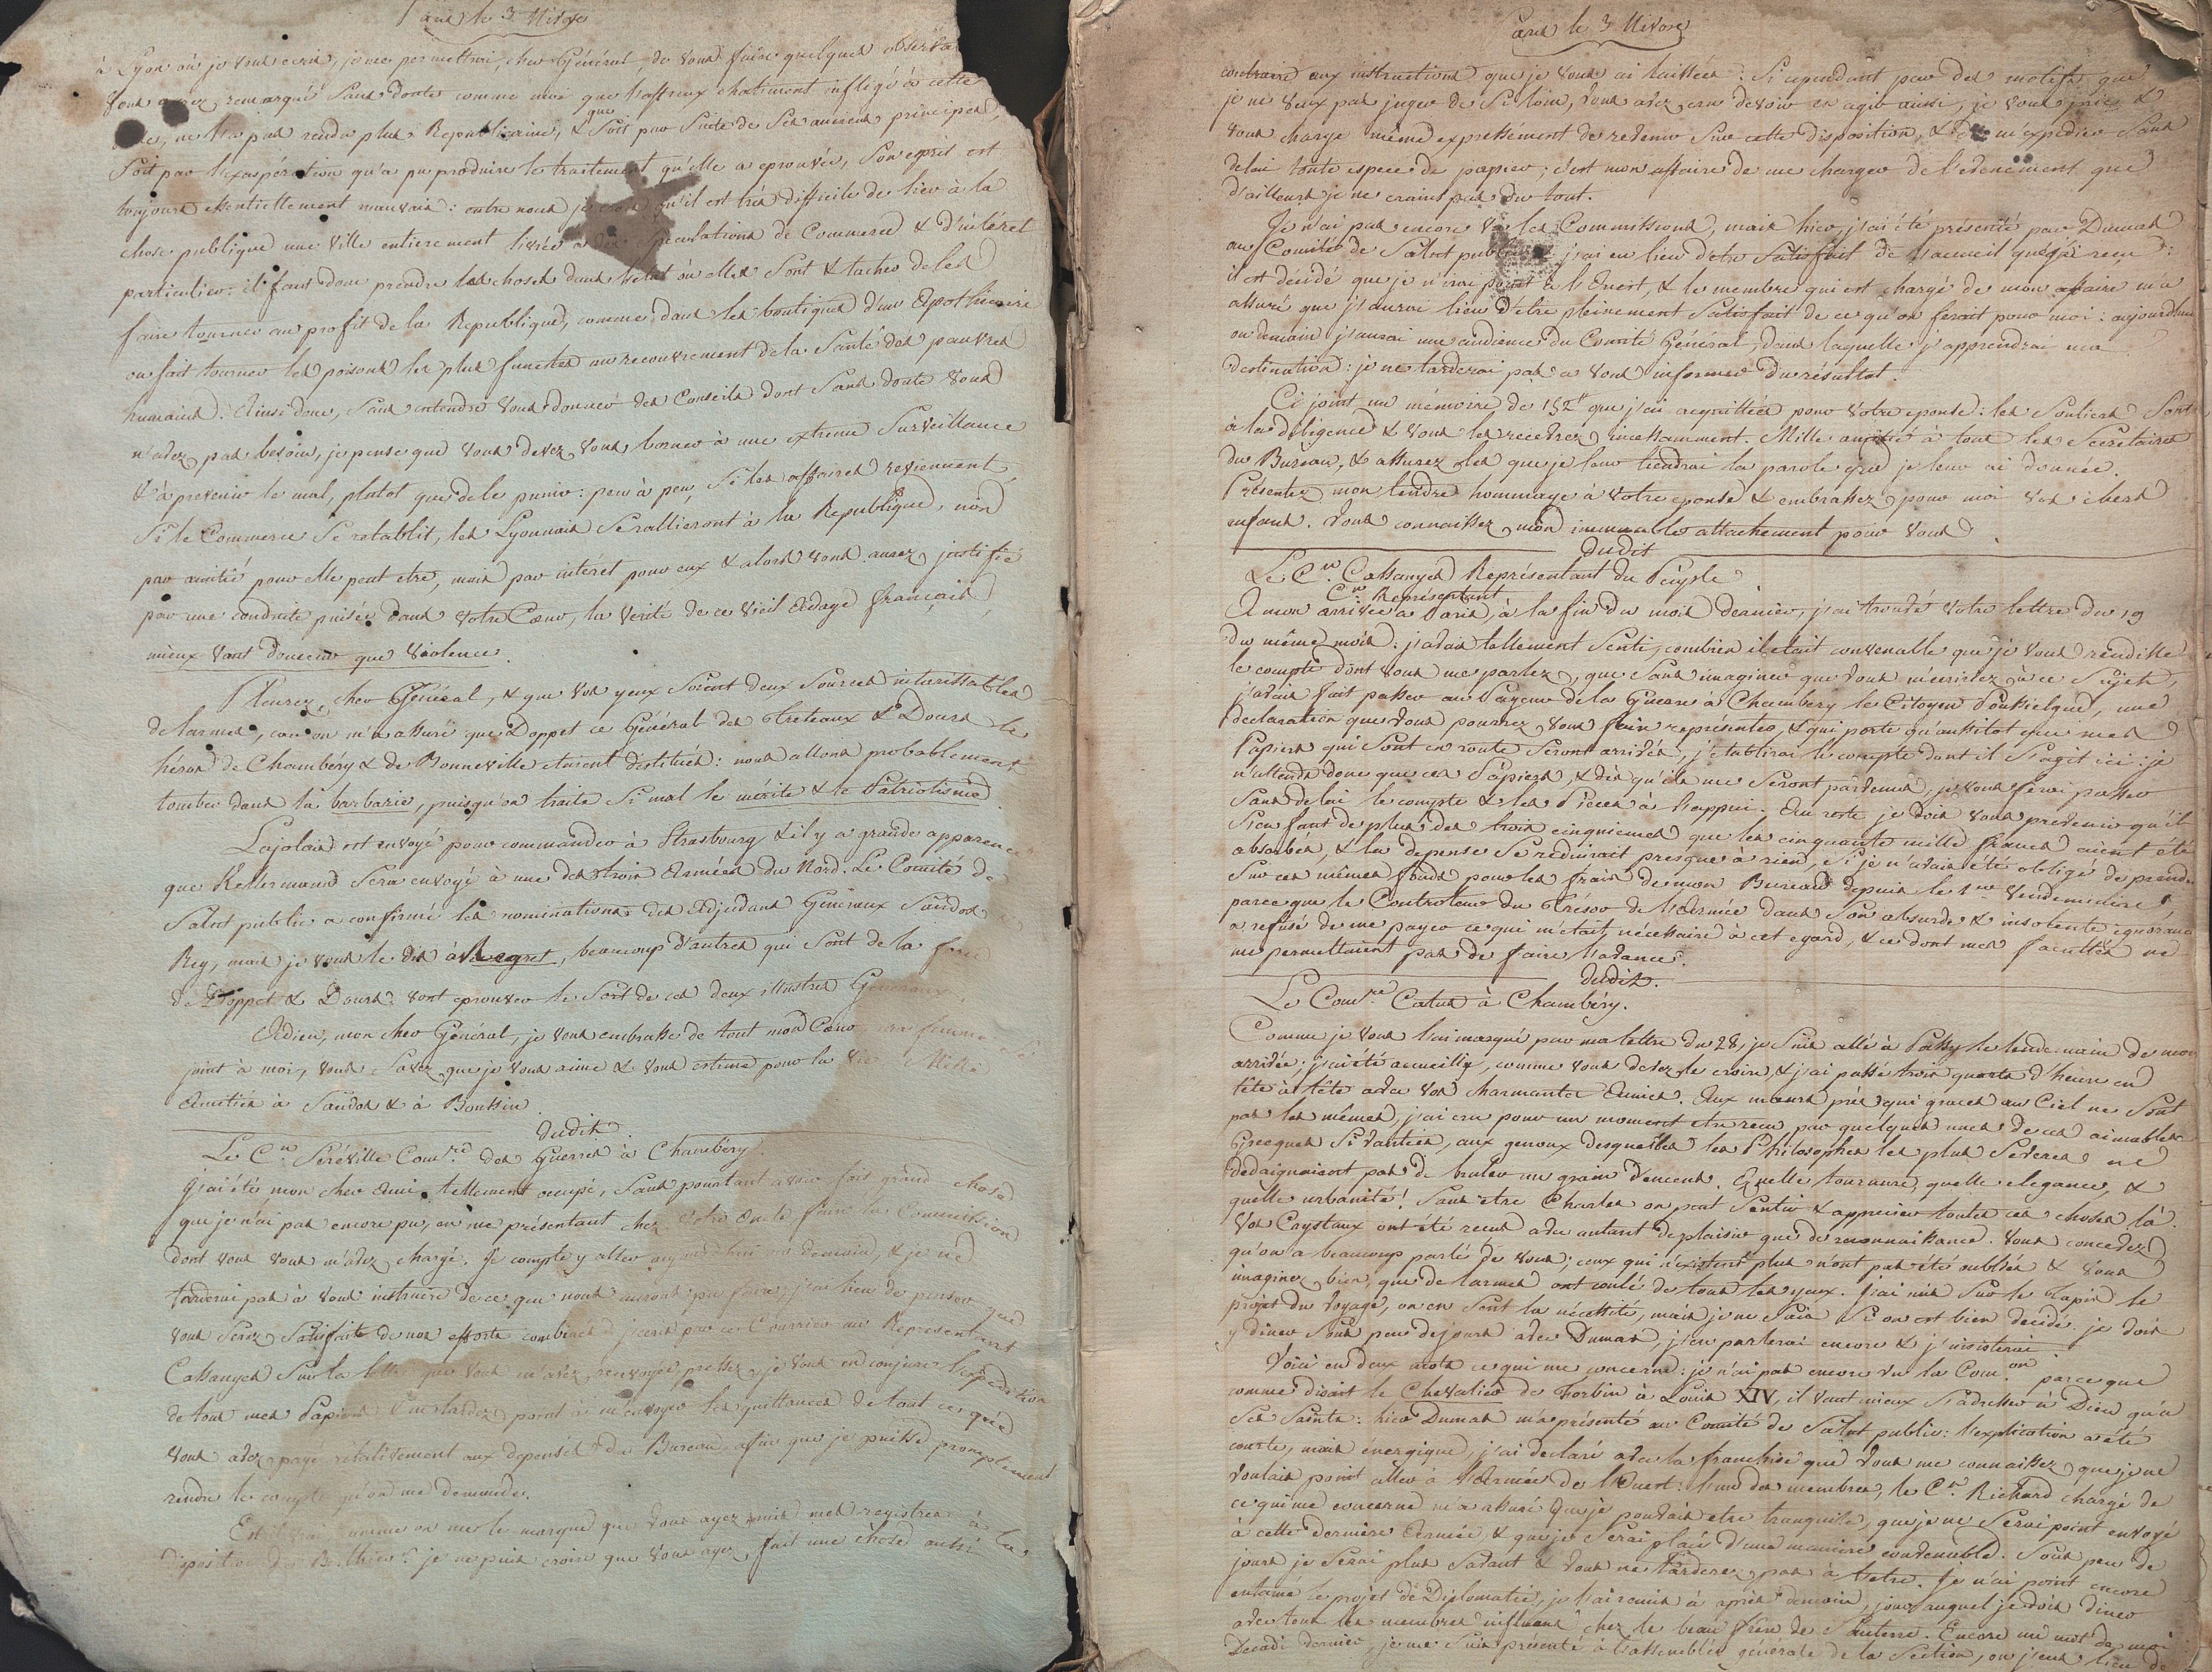 Paris le 3 Nivose
à Lyon où je vous ecris, je me permettrai, cher Général, de vous faire quelques observa
vous avez remarqué sans doute comme moi que l'affreux chatiment infligé à cette
ne l'a pas rendu plus Republicaine, & que soit par suite de ses anciens principes,
soit par l'exaspération qu'a pu produire le traitement qu'elle a eprouvée, son esprit est
toujours essentiellement mauvais : entre nous je crois qu'il est très difficile de lier à la
chose publique une ville entierement livrée à des speculations de Commerce & d'intéret
particulier : il faut donc prendre les choses dans l'etat où elles sont & tacher de les
faire tourner au profit de la Republique, comme dans les boutiques d'un Apothicaire
on fait tourner les poisons les plus funestes au recouvrement de la santé des pauvres
humains. Ainsi donc, sans entendre vous donner des Conseils dont sans doute vous
n'avez pas besoin, je pense que vous devez vous borner à une extreme surveillance
& à prevenir le mal, plutot que de le punir : peu à peu, si les affaires reviennent,
si le Commerce se retablit, les Lyonnais se rallieront à la Republique, non
par amitié pour elle peut etre, mais par intéret pour eux & alors vous aurez justifié
par une conduite puisée dans votre Cœur, la verité de ce vieil Adage français,
mieux vaut douceur que violence.
Pleurez, cher Général, & que vos yeux soient deux sources intarissables
de larmes, car on m'a assuré que Doppet ce Général des Treteaux & Dours le
héros de Chambéry & de Bonneville etaient destitués : nous allons probablement
tomber dans la barbarie, puisqu'on traite si mal le mérite & le Patriotisme.
Lajolais est envoyé pour commander à Strasbourg & il y a grande apparence
que Kellermann sera envoyé à une des trois Armées du Nord. Le Comité de
Salut public a confirmé les nominations des Adjudans Généraux Sandos
Rey, mais je vous le dis à regret, beaucoup d'autres qui sont de la force
de Doppet & Dours vont eprouver le sort de ces deux illustres Généraux.
Adieu, mon cher Général, je vous embrasse de tout mon Cœur, ma femme se
joint à moi, vous savez que je vous aime & vous estime pour la vie. Mille
Amitiés à Sandos & à Boussin.
dudit.
Le C.en Séréville Com.re des Guerres à Chambéry.
J'ai été mon cher Ami, tellement occupé, sans pourtant avoir fait grand chose
que je n'ai pas encore pu, en me présentant chez votre Oncle, faire la Commission
dont vous vous m'avez chargé. Je compte y aller aujourd'hui ou demain, & je ne
tarderai pas à vous instruire de ce que nous aurons pu faire, j'ai lieu de penser que
vous serez satisfaits de nos efforts combinés. j'ecris par ce Courrier au Représentant
Cassanyes sur la lettre que vous m'avez renvoyée, pressez, je vous en conjure l'expédition
de tous mes Papiers & ne tardez point à m'envoyer les quittances de tout ce que
vous avez payé relativement aux depenses du Bureau, afin que je puisse promptement
rendre le compte qu'on me demande.
Est il vrai comme on me le marque que vous ayez mis mes registres à la
disposition de Berthier ? je ne puis croire que vous ayez fait une chose aussi
Paris le 3 Nivose
contraire aux instructions que je vous ai laissées : si cependant par des motifs que
je ne veux pas juger de si loin, vous avez cru devoir en agir ainsi, je vous prie &
vous charge même expressément de revenir sur cette disposition, & de m'expedier sans
delai toute espece de papier ; c'est mon affaire de me charger de l'evenement que
d'ailleurs je ne crains pas du tout.
Je n'ai pas encore vu les Commissions, mais hier, j'ai été présenté par Dumas
au Comité de Salut public & j'ai eu lieu d'etre satisfait de l'accueil que j'ai recu :
il est decidé que je n'irai point à l'Ouest, & le membre qui est chargé de mon affaire m'a
assuré que j'aurai lieu d'etre pleinement satisfait de ce qu'on ferait pour moi : aujourd'hui
ou demain j'aurai une audience du Comité Général, dans laquelle j'apprendrai ma
destination : je ne tarderai pas à vous informer du résultat.
Ci joint un mémoire de 152 # que j'ai acquittés pour votre epouse : les souliers sont
à la diligence & vous les recevrez incessamment. Mille amitiés à tous les Secretaires
du Bureau, & assurez les que je leur tiendrai la parole que je leur ai donnée.
Présentez mon tendre hommage à votre epouse & embrassez pour moi vos chers
enfans. Vous connaissez mon immuable attachement pour vous.
dudit
Le C.en Cassanyes Représentant du Peuple
C.en Représentant
A mon arrivée à Paris, à la fin du mois dernier, j'ai trouvé votre lettre du 19
du même mois : j'avais tellement senti combien il etait convenable que je vous rendisse
le compte dont vous me parlez, que sans imaginer que vous m'ecririez à ce sujet,
j'avais fait passer au Payeur de la Guerre à Chambéry le Citoyen Poussielgue, une
declaration que vous pourrez vous faire représenter, & qui porte qu'aussitot que mes
Papiers qui sont en route seront arrivés, j'etablirai le compte dont il s'agit ici : je
n'attends donc que ces Papiers, & dès qu'ils me seront parvenus, je vous ferai passer
sans delai le compte & les Pièces à l'appui. Au reste je dois vous prevenir qu'il
s'en faut de plus des trois cinquiemes que les cinquante mille francs aient été
absorbés, & la depense se reduirait presque à rien, si je n'avais été obligé de prendre
sur ces mêmes fonds pour les frais de mon Bureau depuis le 1.er Vendemiaire,
parce que le Controleur du Trésor de l'Armée dans son absurde & insolente ignorance
a refusé de me payer ce qui m'etait nécessaire à cet egard, & ce dont mes facultés ne
me permettaient pas de faire l'avance.
dudit.
Le Com.re Catus à Chambéry.
Comme je vous l'ai marqué par ma lettre du 28, je suis allé à Passy le lendemain de mon
arrivée ; j'ai été accueilly, comme vous devez le croire, & j'ai passé trois quarts d'heure en
tête à tête avec vos charmantes Amies. Aux mœurs près qui graces au Ciel ne sont
pas les mêmes, j'ai cru pour un moment etre recu par quelques unes de ces aimables
Grecques si vantées, aux genoux desquelles les Philosophes les plus severes ne
dedaignaient pas de bruler un grain d'encens. Quelle tournure, quelle elegance, &
quelle urbanité ! sans etre Charles on peut sentir & apprecier toutes ces choses là.
Vos Crystaux ont été recus avec autant de plaisir que de reconnaissance. Vous concevez
qu'on a beaucoup parlé de vous ; ceux qui n'existent plus n'ont pas été oubliés & vous
imaginez bien, que de larmes ont coulé de tous les yeux. J'ai mis sur le tapis le
projet du voyage, on en sent la nécessité, mais je ne sais si on est bien decidé. je dois
y diner sous peu de jours avec Dumas, j'en parlerai encore & j'insisterai.
Voici en deux mots ce qui me concerne : je n'ai pas encore vu la Com.on parce que
comme disait le Chevalier de Forbin à Louis XIV, il vaut mieux s'adresser à Dieu qu'à
ses Saints : hier Dumas m'a présenté au Comité de Salut public : l'explication a été
courte, mais énergique, j'ai declaré avec la franchise que vous me connaissez que je ne
voulais point aller à l'Armée de l'Ouest : l'un des membres, le C.en Richard chargé de
ce qui me concerne m'a assuré que je pouvais etre tranquile, que je ne serai point envoyé
à cette derniere Armée & que je serai placé d'une maniere convenable. Sous peu de
jours je serai plus savant & vous ne tarderez pas à l'etre. Je n'ai point encore
entamé le projet de Diplomatie, je l'ai remis à après demain, jour auquel je dois diner
avec tous les membres influens chez le beau frere de Santerre. Encore un mot de moi
Decadi dernier, je me suis présenté à l'assemblée générale de la Section, ou j'eus lieu de